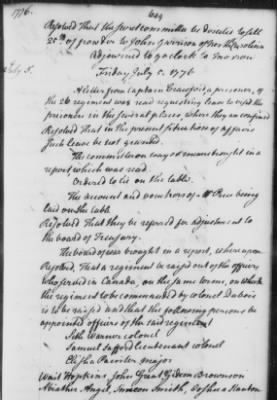 1776.
Resolved That the secret committee be directed to sell
25 lb of powder to John Garrison of North Carolina
Adjourned to 9 o clock to morrow
Friday July 5. 1776
A letter from captain Crauford, a prisoner, of
the 26 regiment was read requesting leave to visit the
prisoners in the several places, where they are confined
Resolved That in the present situation of affairs
such leave be not granted.
The committee on brought in a
report which was read.
Ordered to lie on the table.
The account and vouchers of Mr Price being
laid on the table
Resolved That they be referred for adjustment to
the board of Treasury.
The board of war brought in a report, whereupon
Resolved, That a regiment be raised out of the officers
who served in Canada, on the same terms, on which
the regiment to be commanded by colonel Dubois
is to be raised and that the following persons be
appointed officers of the said regiment
Seth Warner colonel
Samuel Safford lieutenant colonel
Elisha Painter major
Wait Hopkins, John Grant Gideon Brownson
Abiather Angel, Simeon Smith, Joshua Stanton